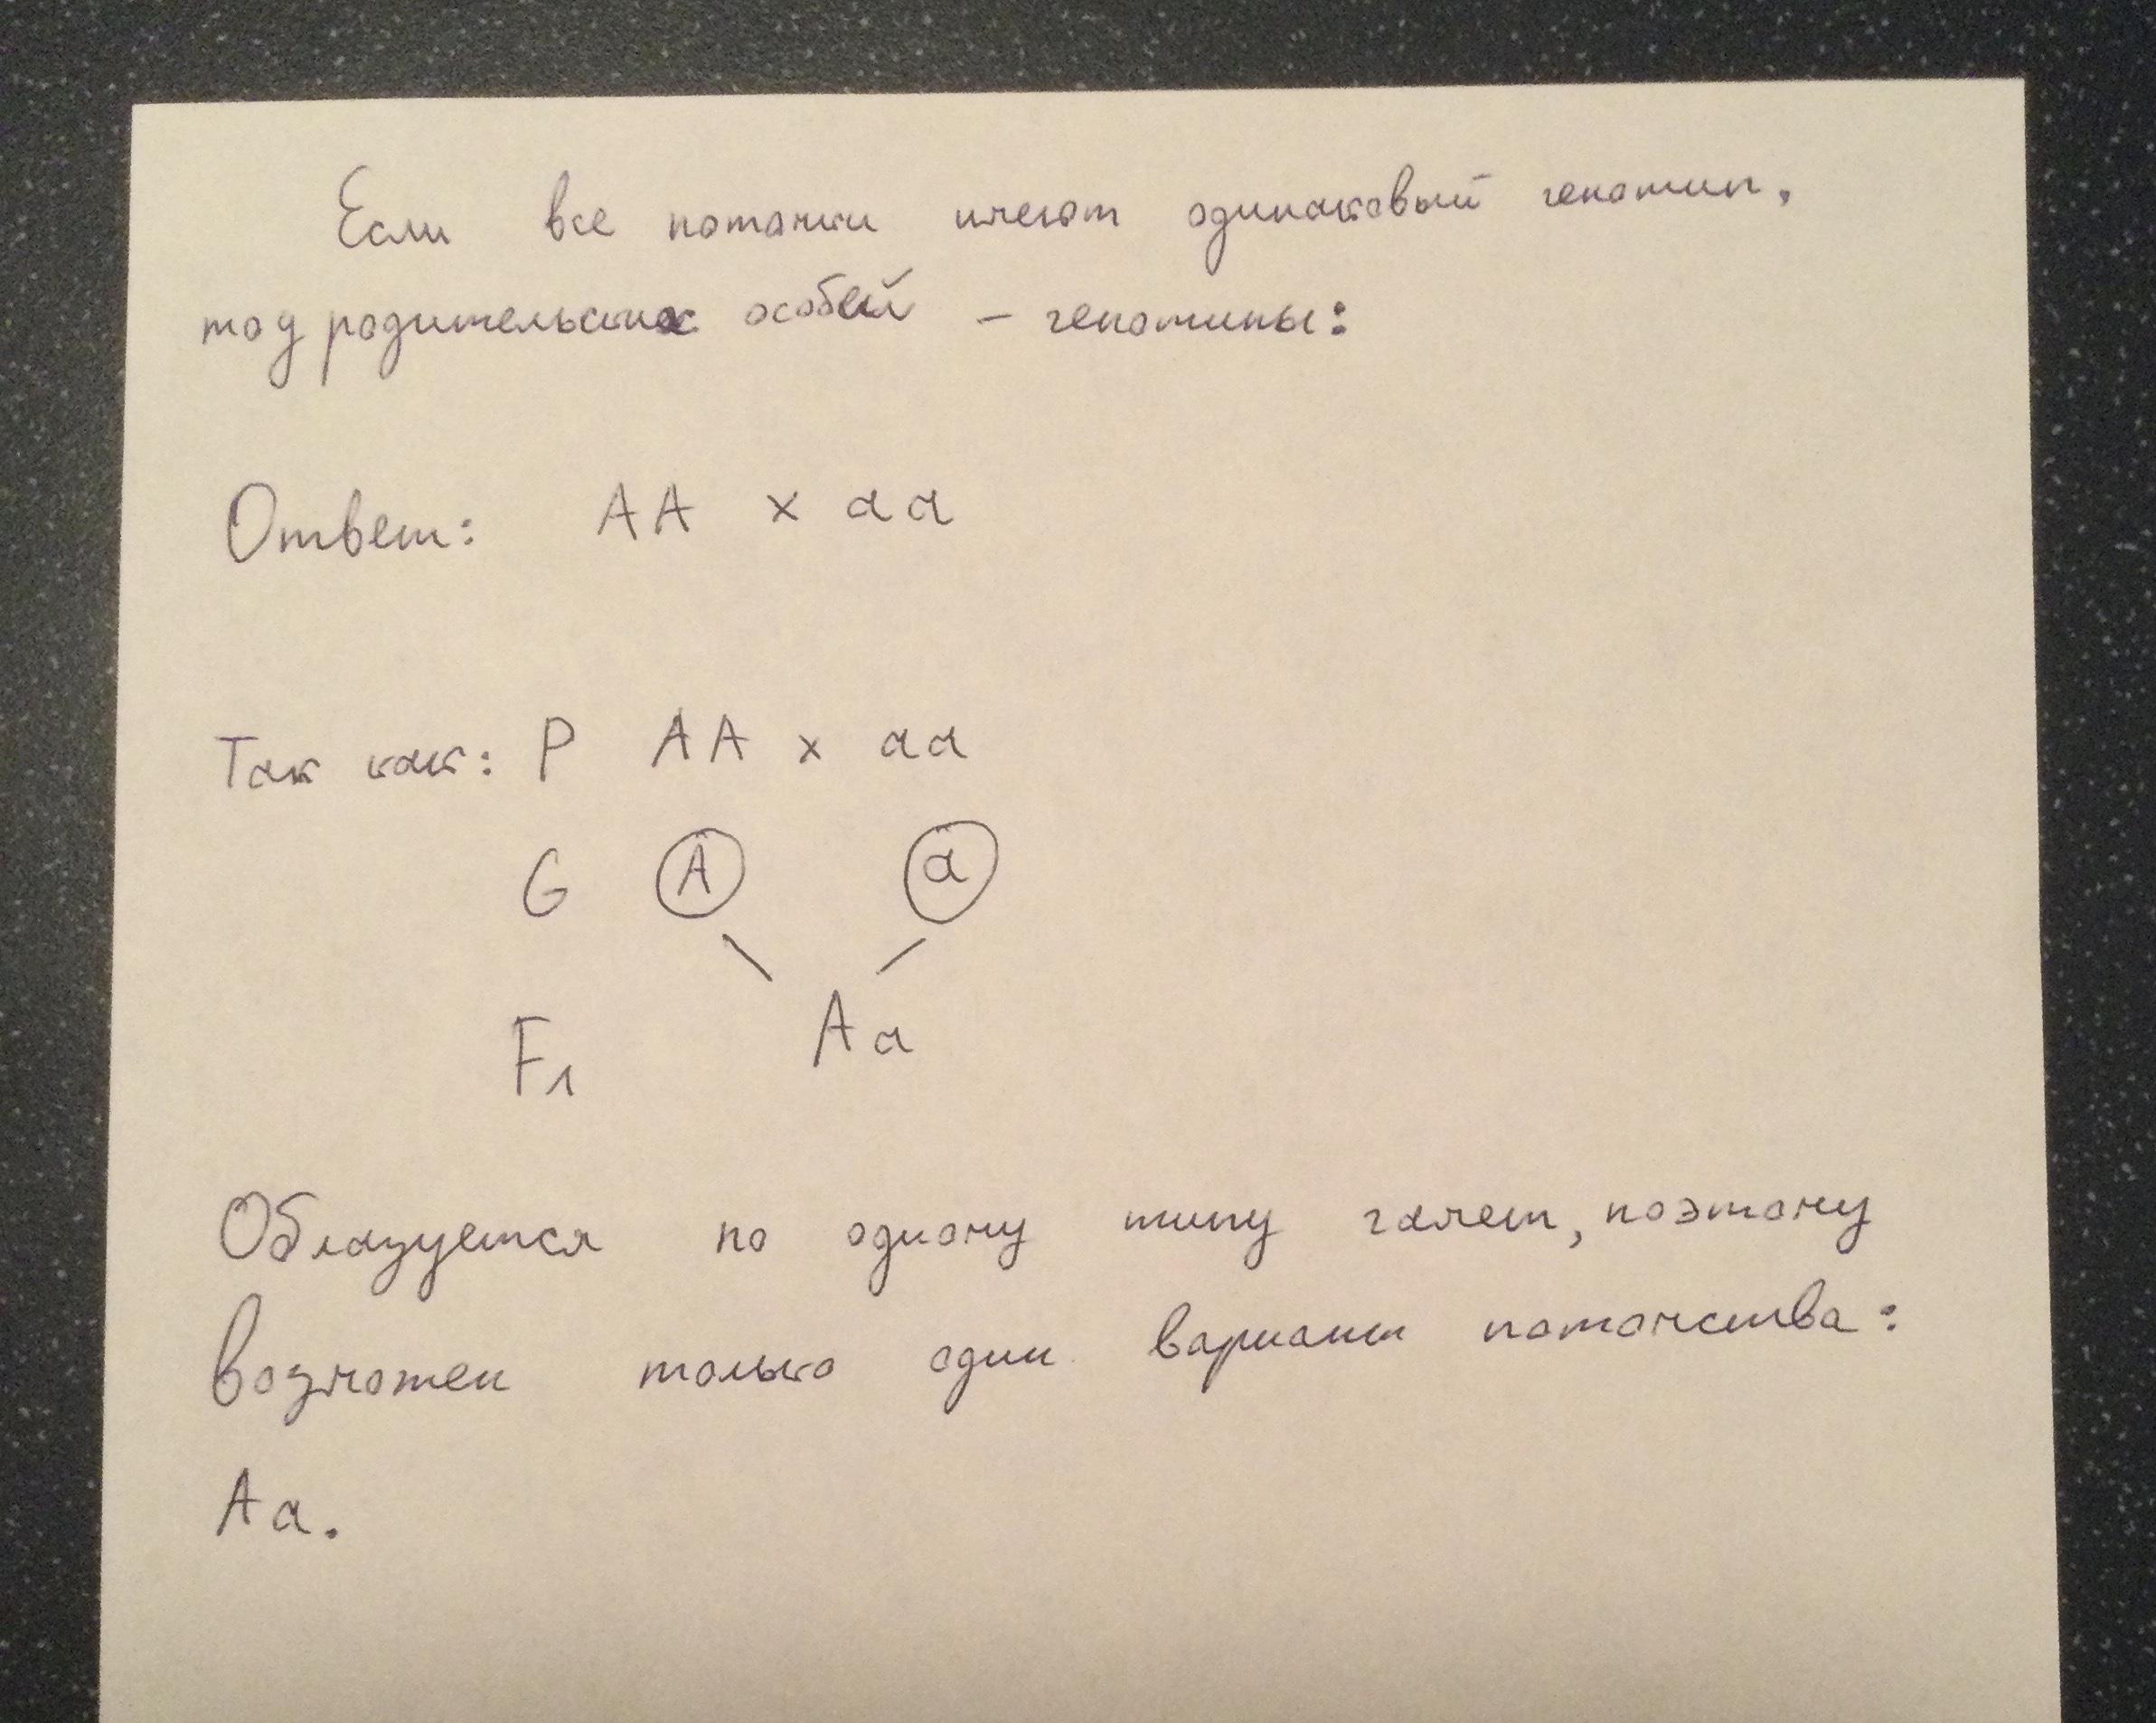 Если все потомки имеют одинаковый генотип,
то у родительских особей - генотипы:
Ответ: АА х аа
Так как: Р АА х аа
G А а
F1 Аа
Образуется по одному типу гамет, поэтому
возможен только один вариант потомства:
Аа.